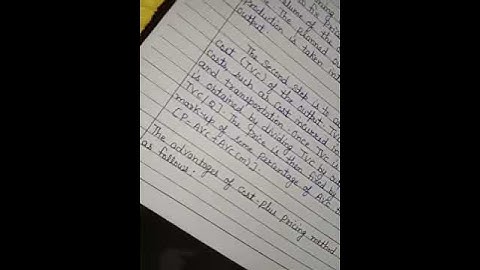 volume of the
The planned ou
production is taken int
output.
The Second step is to ca
cost (TVC) of the output. TVC
costs, such as cost incurred in
and transportation. Once TVC is
is obtained by dividing TVC by out
TVC/Q] The price is then fixed by
mark-up of some percentage of AVC
[P=AVC+AVC(m)].
The advantages of cost-plus pricing method
as follows: